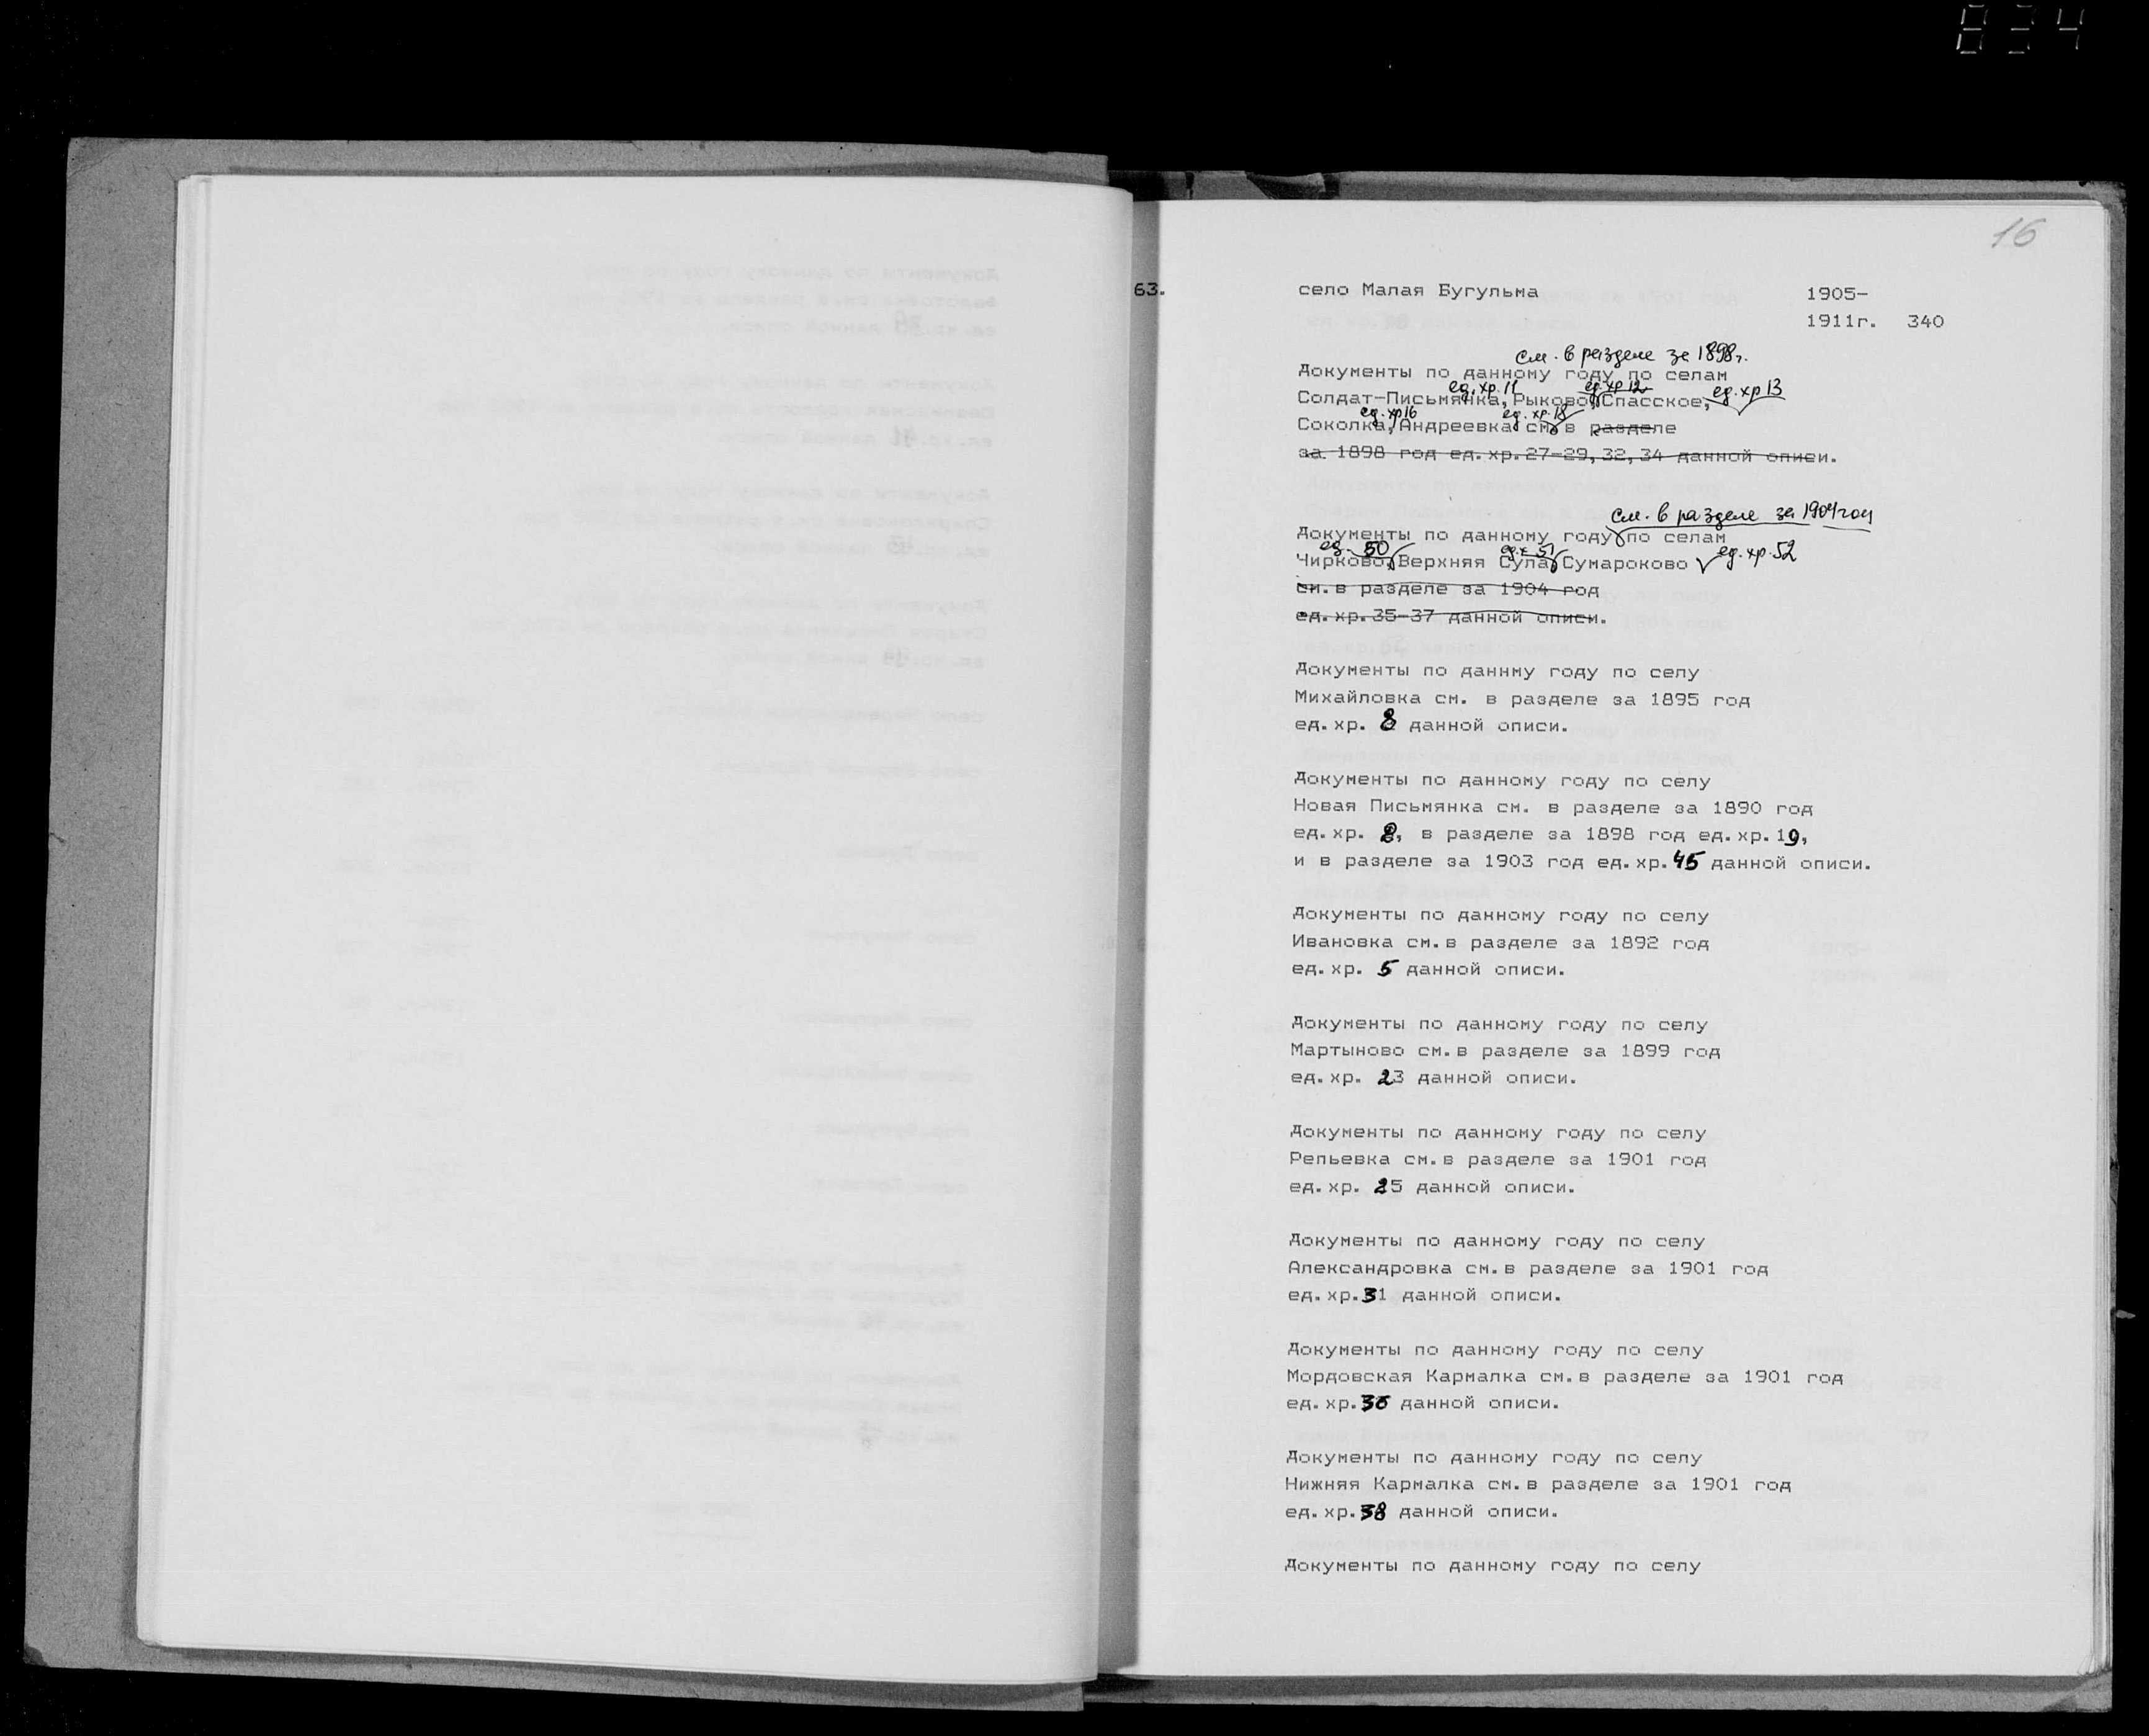 834
16
63. село Малая Бугульма 1905-
1911г. 340
см. в разделе за 1898г.
Документы по данному году по селам
ед. хр. 11 ед. хр 12 ед. хр 13
Солдат-Письмянка, Рыково, Спасское,
ед. хр 16 ед. хр. 18
Соколка, Андреевка см. в разделе
за 1898 год ед. хр. 27-29, 32, 34 данной описи.
см. в разделе за 1904 год
Документы по данному году по селам
ед. 50 ед. х 51 ед. хр. 52
Чирково, Верхняя Сула, Сумароково
см. в разделе за 1904 год
ед. хр. 35-37 данной описи.
Документы по даннму году по селу
Михайловка см. в разделе за 1895 год
ед. хр. 8 данной описи.
Документы по данному году по селу
Новая Письмянка см. в разделе за 1890 год
ед. хр. 2, в разделе за 1898 год ед. хр. 19,
и в разделе за 1903 год ед. хр. 45 данной описи.
Документы по данному году по селу
Ивановка см. в разделе за 1892 год
ед. хр. 5 данной описи.
Документы по данному году по селу
Мартыново см. в разделе за 1899 год
ед. хр. 23 данной описи.
Документы по данному году по селу
Репьевка см. в разделе за 1901 год
ед. хр. 25 данной описи.
Документы по данному году по селу
Александровка см. в разделе за 1901 год
ед. хр. 31 данной описи.
Документы по данному году по селу
Мордовская Кармалка см. в разделе за 1901 год
ед. хр. 36 данной описи.
Документы по данному году по селу
Нижняя Кармалка см. в разделе за 1901 год
ед. хр. 38 данной описи.
Документы по данному году по селу